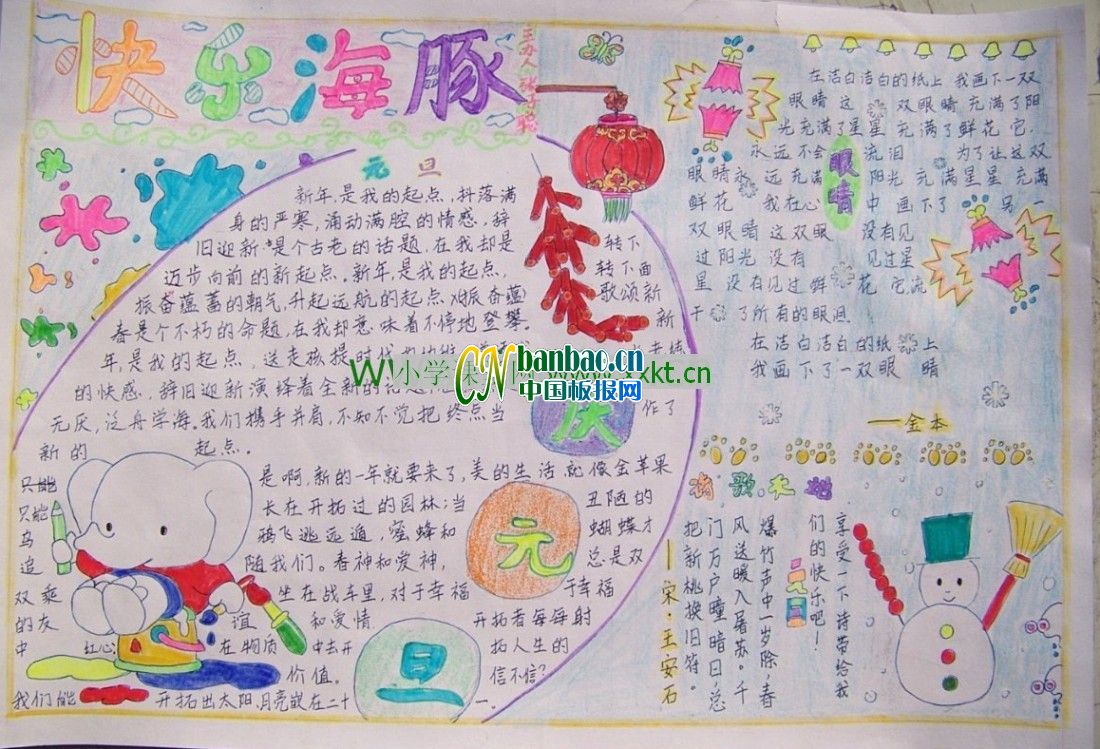 快乐海豚
主办人
元旦
新年是我的起点,抖落满
身的严寒,涌动满腔的情感,辞
旧迎新,是个古老的话题,在我却是
迈步向前的新起点。新年是我的起点,
振奋蕴蓄的朝气,升起远航的起点,如振奋蕴
春是个不朽的命题,在我却意味着不停地登攀。
年,是我的起点,送走孩提时代
的快感,辞旧迎新演绎着全新的
元庆,泛舟学海,我们携手并肩,不知不觉把终点当
作了
新的
起点。
转下
转下面
歌颂新
新
是啊,新的一年就要来了,美的生活就像金苹果
只能
长在开拓过的园林;当
丑陋的
只能
乌
鸦飞逃远遁,蜜蜂和
蝴蝶才
追
随我们。春神和爱神,
总是双
双乘
坐在战车里,对于幸福
于幸福
的友
谊
和爱情
开拓者每每射
中
红心
在物质
中去开
拓人生的
价值。
信不信?
我们能
开拓出太阳,月亮嵌在二十
一。
庆
元
旦
在洁白洁白的纸上 我画下一双
眼睛 这 双眼睛 充满了阳
光 充满了星星 充满了鲜花 它
永远不会 流泪 为了让这双
眼睛永 远充满 阳光 充满星星 充满
鲜花 我在心 中 画下了 另一
双眼睛 这双眼 没有见
过阳光 没有 见过星
星 没有见过鲜 花 它流
干 了所有的眼泪
在洁白洁白的纸 上
我画下了一双眼 睛
眼睛
——金本
享受一下诗带给我
们的快乐吧!
元旦
爆竹声中一岁除,春
风送暖入屠苏。千
门万户曈曈日,总
把新桃换旧符。
——宋·王安石
CN banbao.cn
中国板报网
小学课
xkt.cn